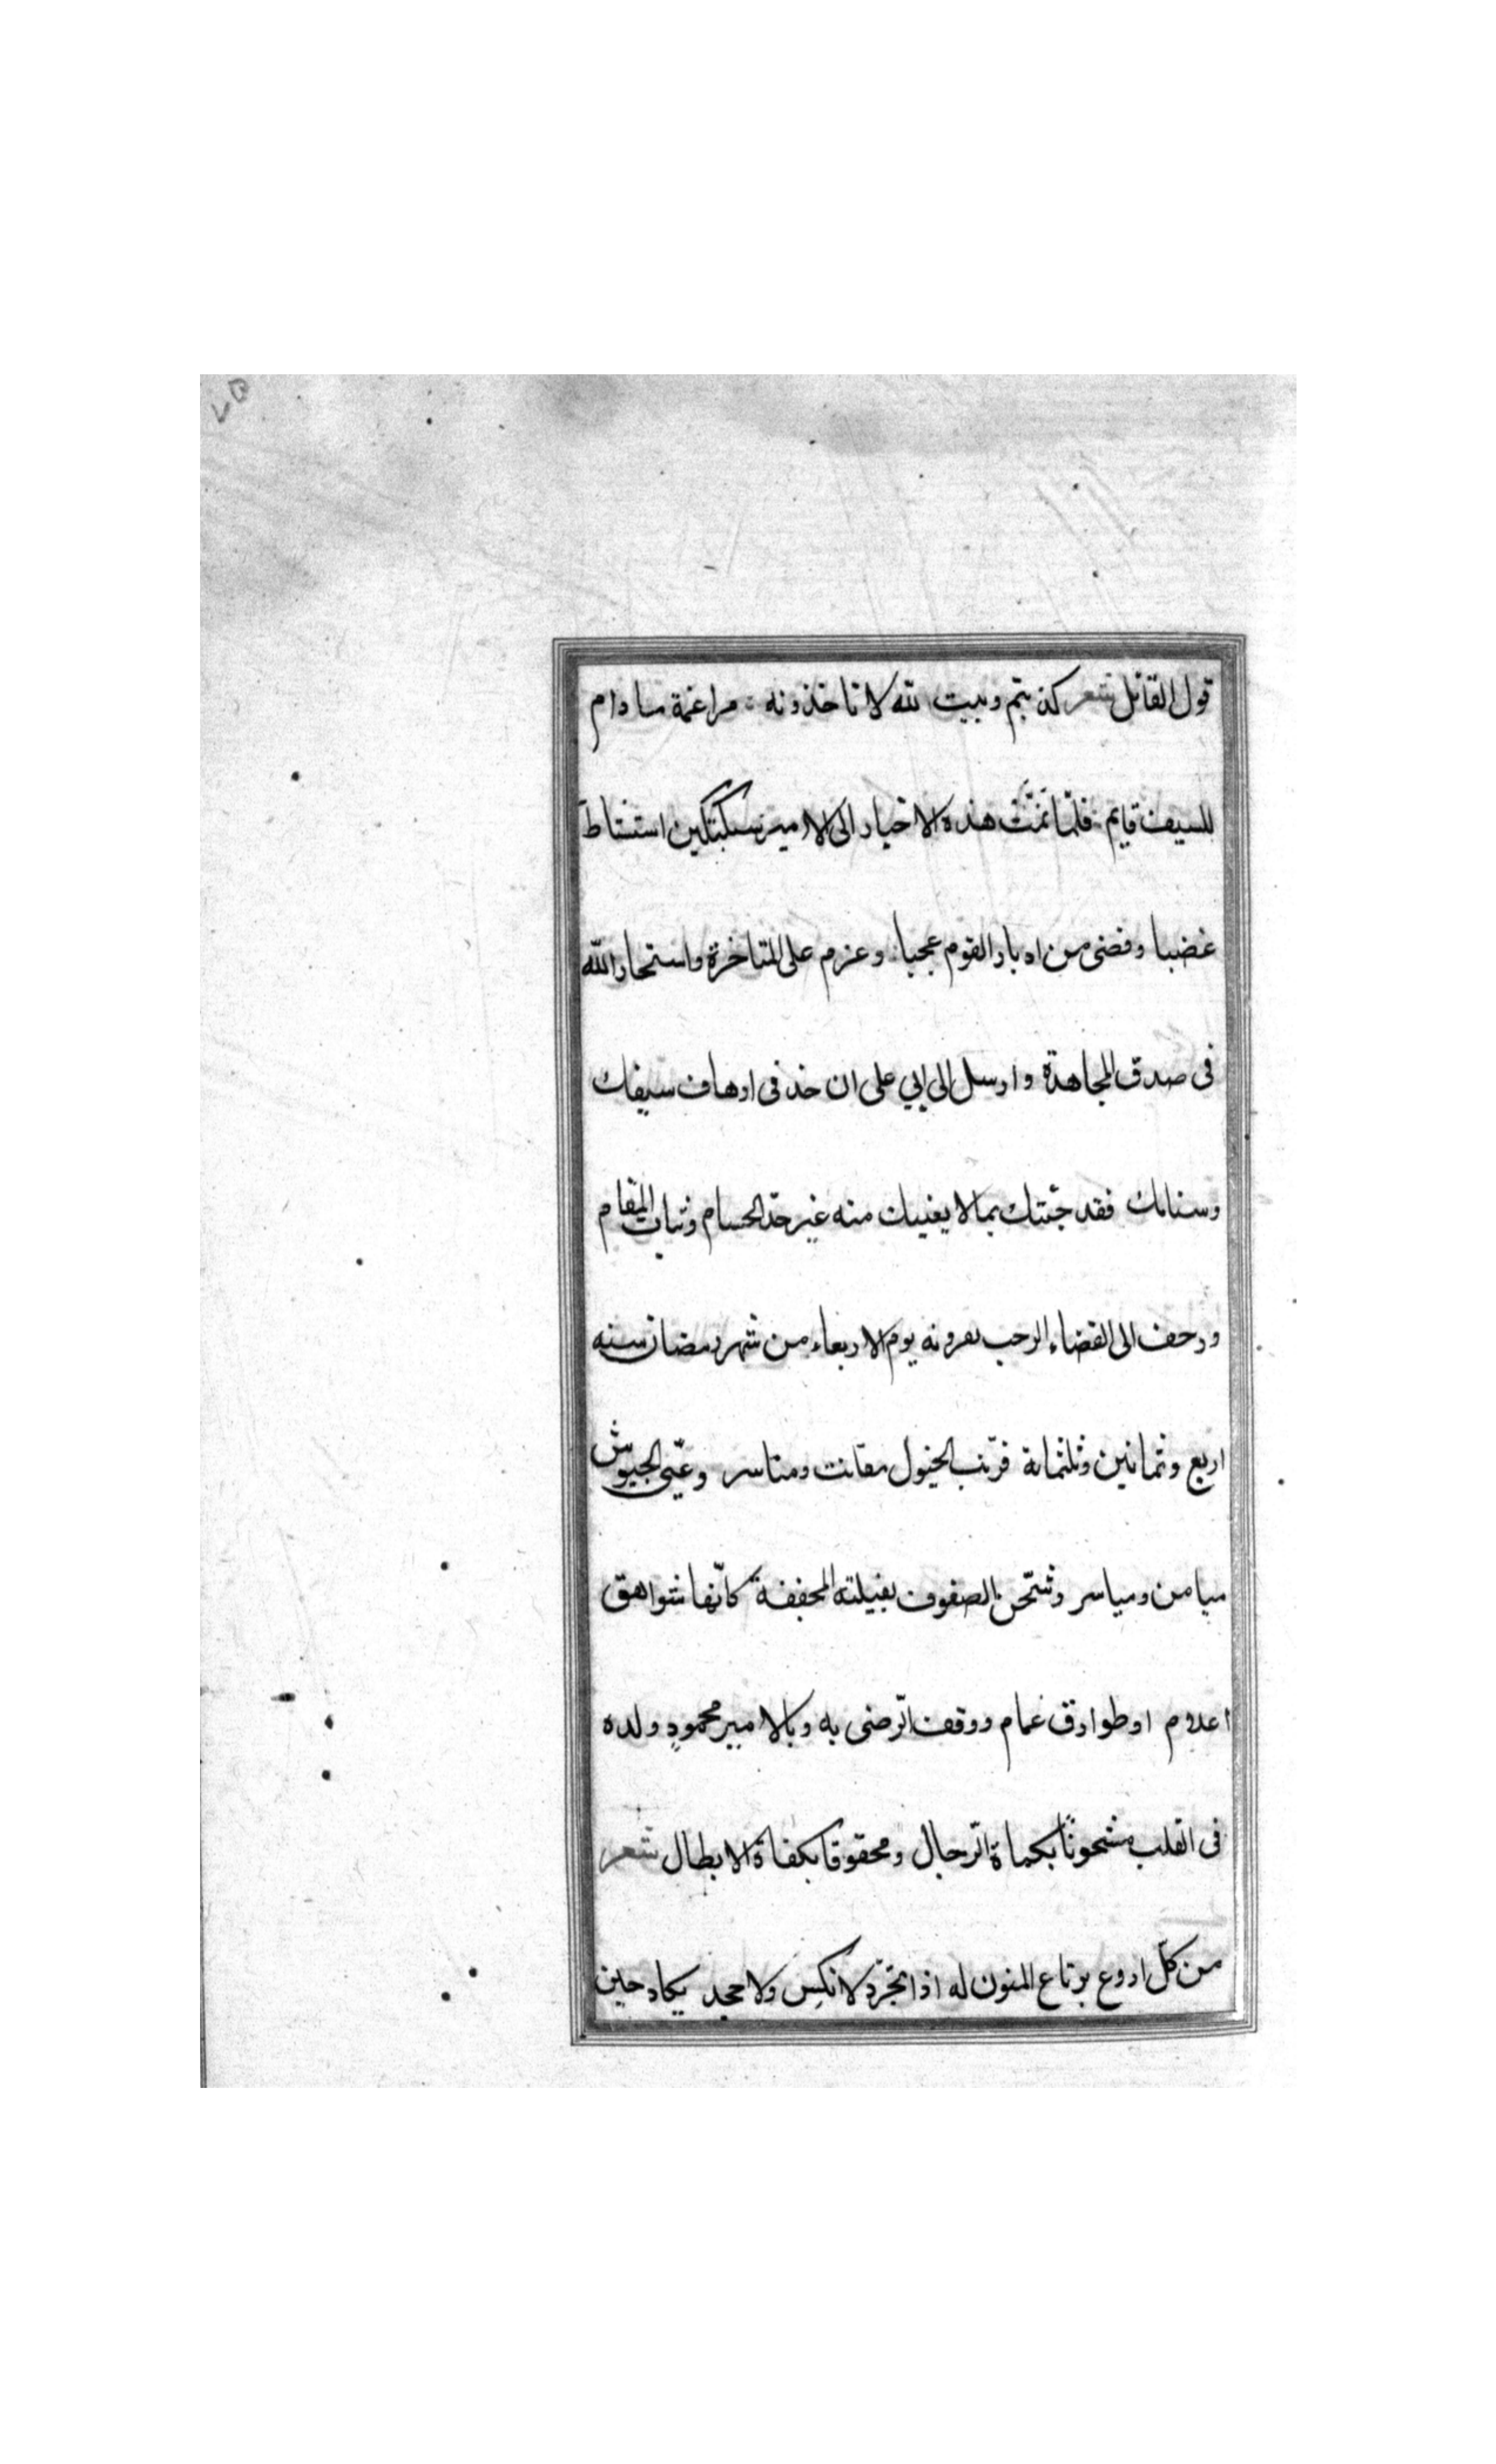 ٥٧
قول القائل شعر كذبتم وبيت الله لا تاخذونه مراغمة مادام
للسيف قايم فلما تمت هذه الاخبار الى الامير سبكتكين استشاط
غضبا وقضى من ادبار القوم عجبا وعزم على المتاخرة واستخار الله
فى صدق المجاهدة وارسل الى ابي على ان خذ فى ارهاف سيفك
وسنانك فقد جئتك بما لا يغنيك منه غير حد الحسام وثبات المقام
وزحف الى الفضاء الرحب يوم الاربعاء من شهر رمضان سنه
اربع وثمانين وثلثمائة فرتب الخيول مقانب ومناسر وعبّى الجيوش
ميامن ومياسر وشحن الصفوف بفيلته المجففة كانّها شواهق
اعلام او طوارق غمام ووقف الرضى به وبالامير محمودٍ ولده
فى القلب مشحونًا بكماة الرجال ومحقوقا بكفاة الابطال شعر
من كلّ اروع يرتاع المنون له اذا تجرّد لا نكس ولا جحد يكاد حين